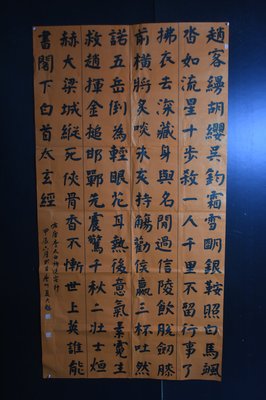 趙客縵胡纓吳鈎霜雪明銀鞍照白馬颯
沓如流星十步殺一人千里不留行事了
拂衣去深藏身與名閒過信陵飲脫劍膝
前橫將炙啖朱亥持觴勸侯嬴三杯吐然
諾五岳倒為輕眼花耳熱後意氣素霓生
救趙揮金槌邯鄲先震驚千秋二壯士烜
赫大梁城縱死俠骨香不慚世上英誰能
書閣下白首太玄經
唐李太白詩俠客行
甲辰六月